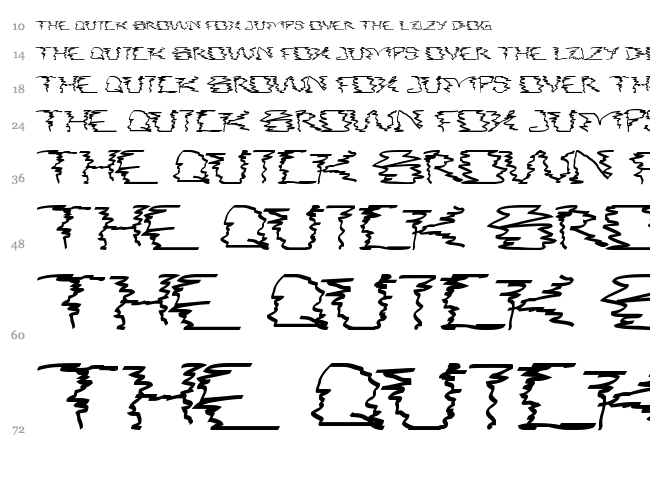 10 THE QUICK BROWN FOX JUMPS OVER THE LAZY DHOG
14 THE QUICK BROWN FOX JUMPS OVER THE LAZY DH
18 THE QUICK BROWN FOX JUMPS OVER TH
24 THE QUICK BROWN FOX JUMPS
36 THE QUICK BROWN F
48 THE QUICK BRO
60 THE QUICK B
72 THE QUICK